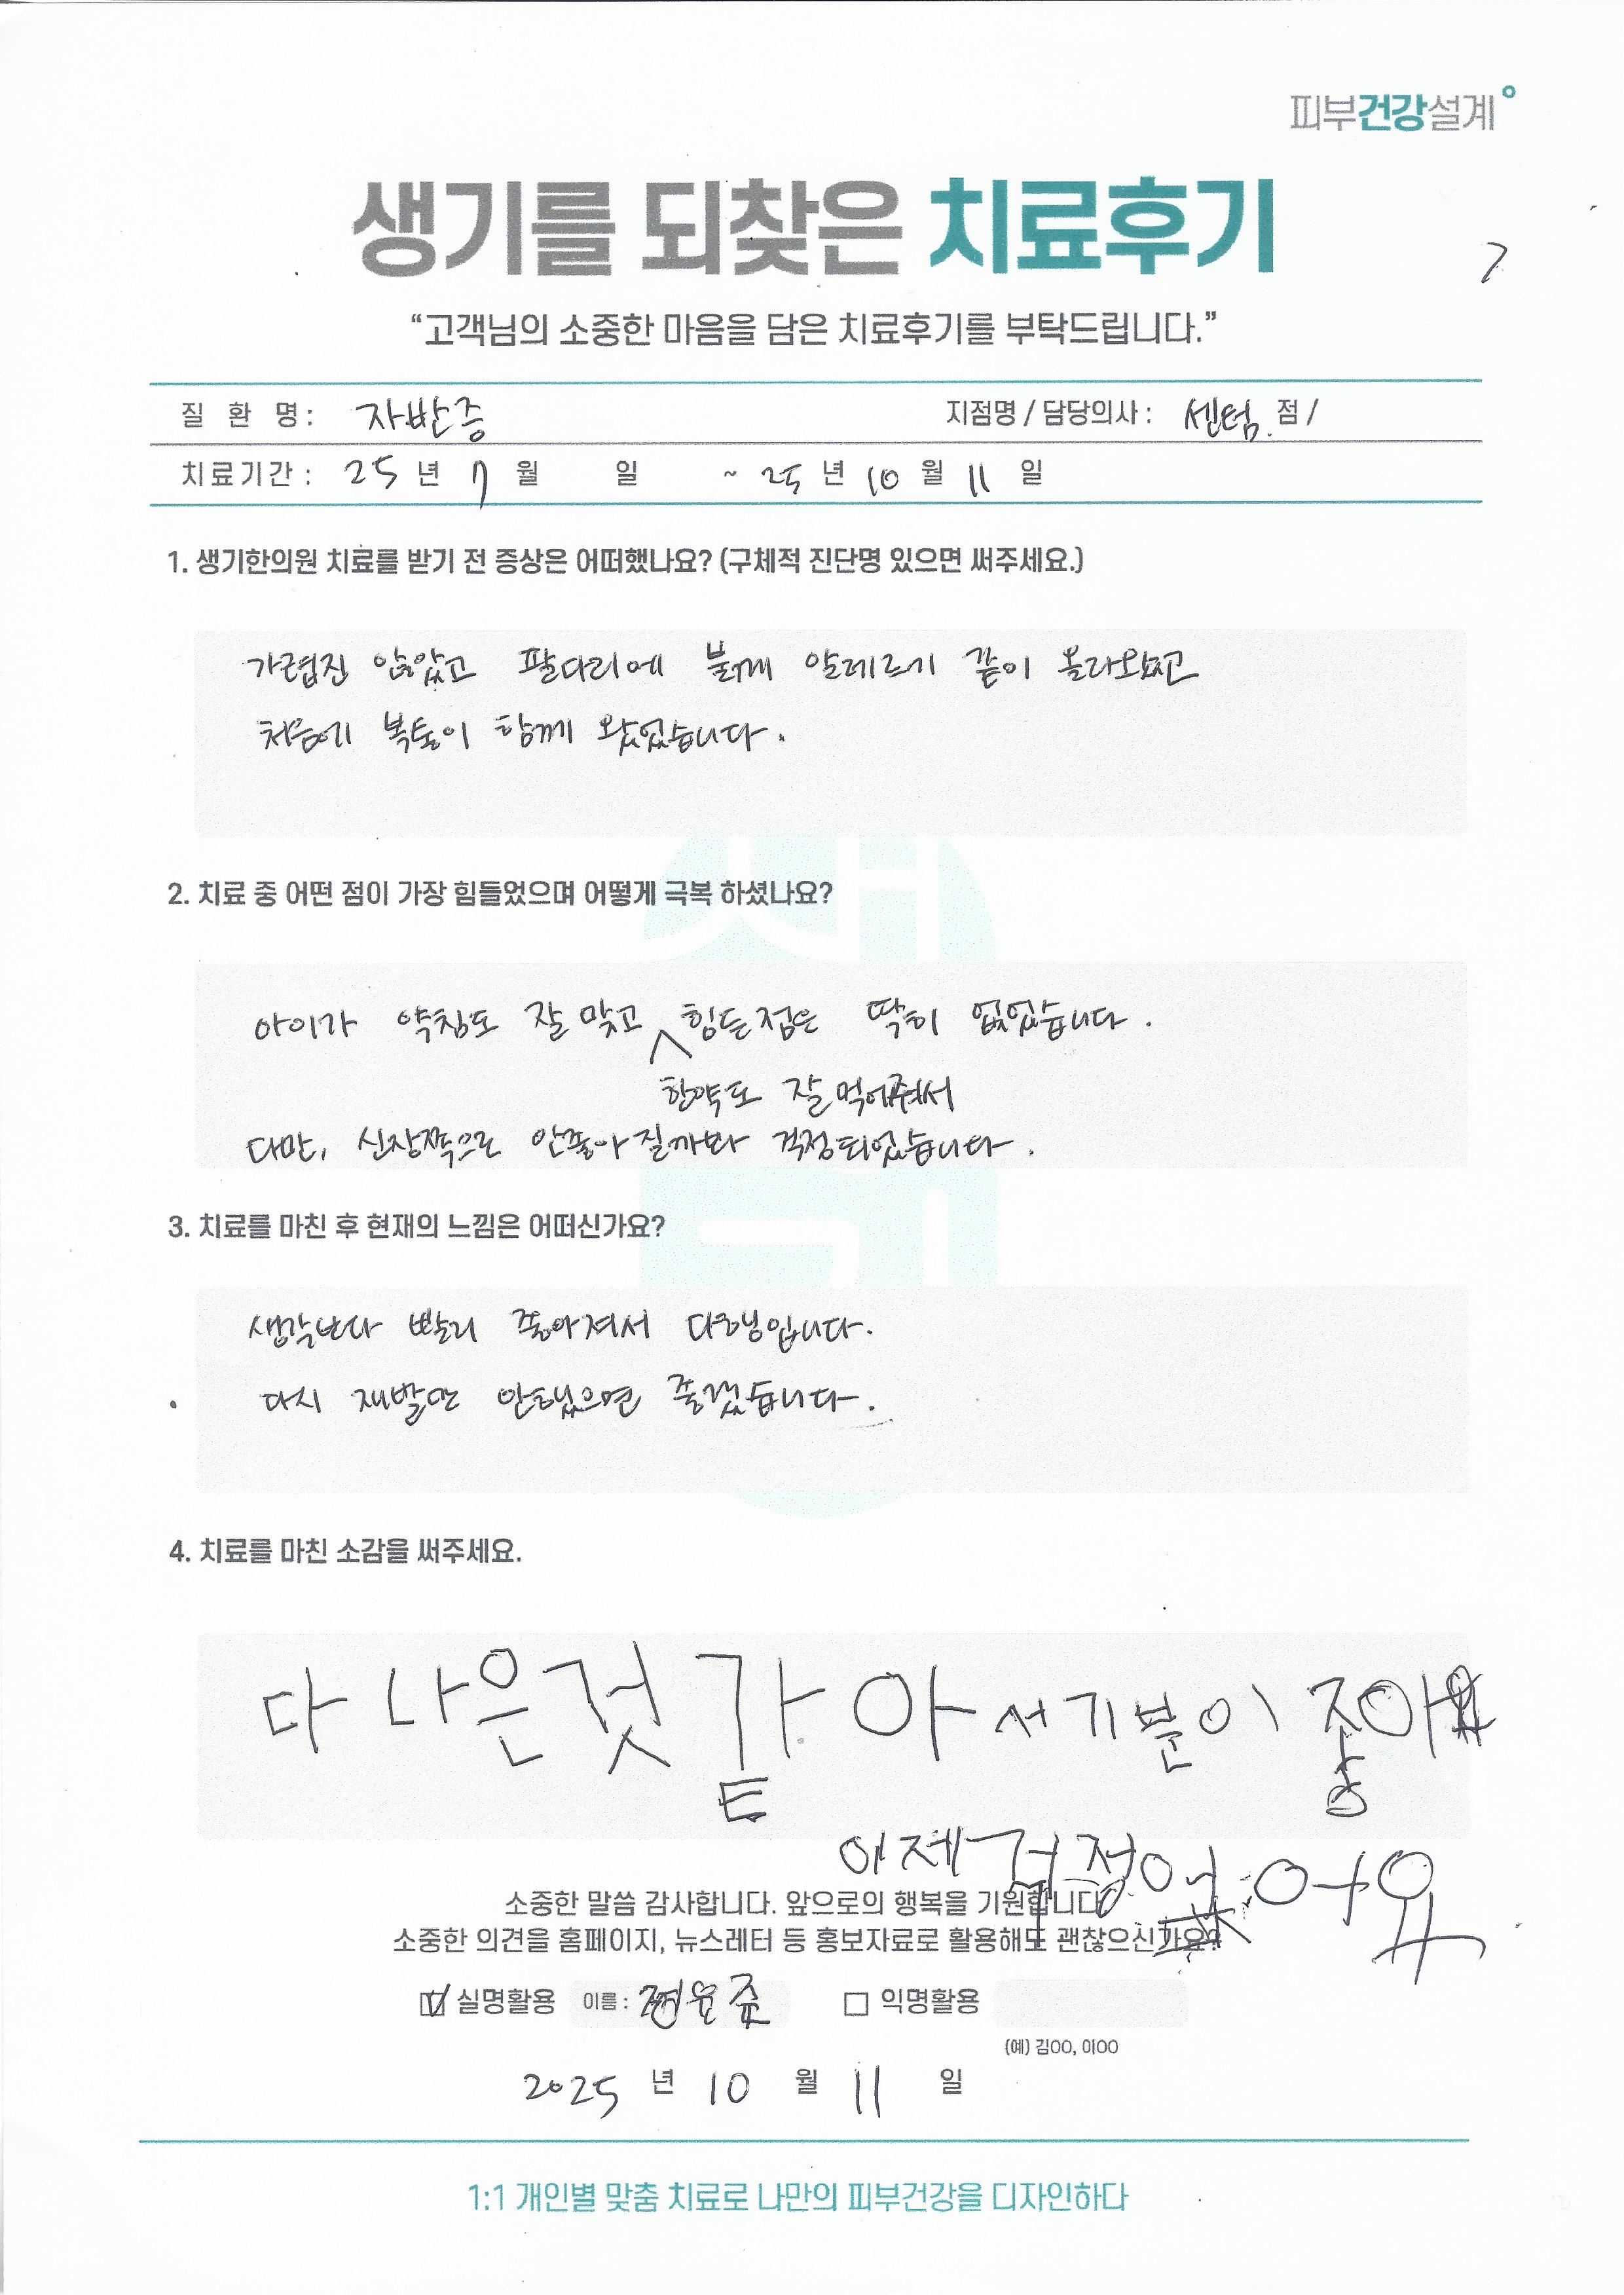 피부건강설계
생기를 되찾은 치료후기
“고객님의 소중한 마음을 담은 치료후기를 부탁드립니다.”
질 환 명 : 자반증 지점명 / 담당의사 : 센텀 점 /
치료기간 : 25 년 7 월 일 ~ 25 년 10 월 11 일
1. 생기한의원 치료를 받기 전 증상은 어떠했나요? (구체적 진단명 있으면 써주세요.)
가렵진 않았고 팔다리에 붉게 알레르기 같이 올라왔고
처음에 복통이 함께 왔었습니다.
2. 치료 중 어떤 점이 가장 힘들었으며 어떻게 극복 하셨나요?
아이가 약침도 잘 맞고 힘든점은 딱히 없었습니다.
한약도 잘 먹어줘서
다만, 신장쪽으로 안좋아질까봐 걱정되었습니다.
3. 치료를 마친 후 현재의 느낌은 어떠신가요?
생각보다 빨리 좋아져서 다행입니다.
다시 재발만 안했으면 좋겠습니다.
4. 치료를 마친 소감을 써주세요.
다 나은것 같아서 기분이 좋아
이제 걱정 없어요
소중한 말씀 감사합니다. 앞으로의 행복을 기원합니다
소중한 의견을 홈페이지, 뉴스레터 등 홍보자료로 활용해도 괜찮으신가요?
실명활용 이름 : 익명활용
(예) 김OO, 이OO
2025 년 10 월 11 일
1:1 개인별 맞춤 치료로 나만의 피부건강을 디자인하다